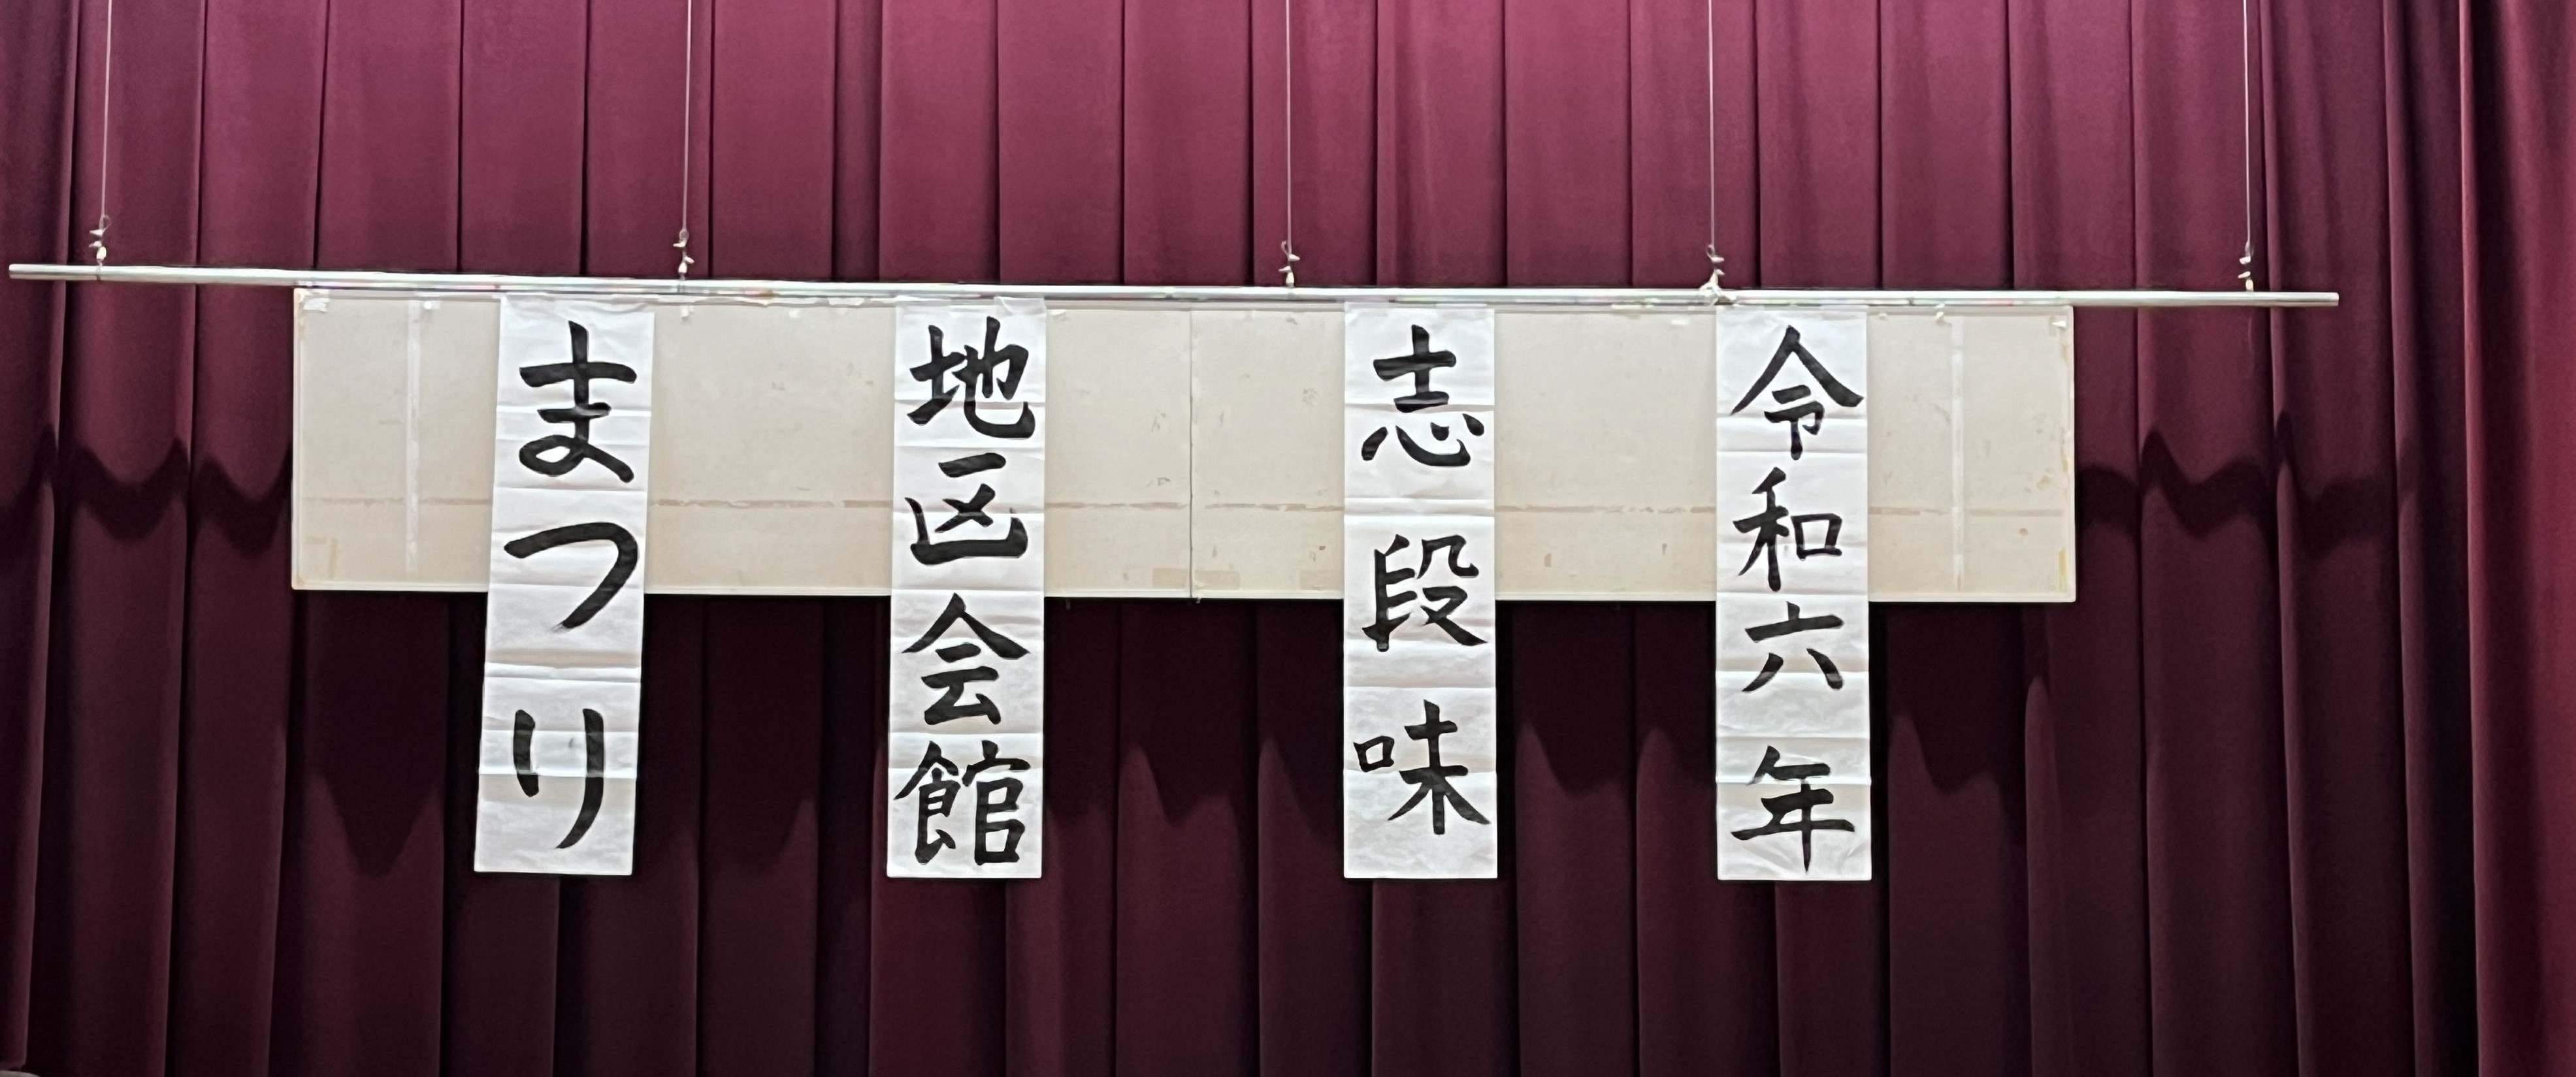 令和六年
志段味
地区会館
まつり